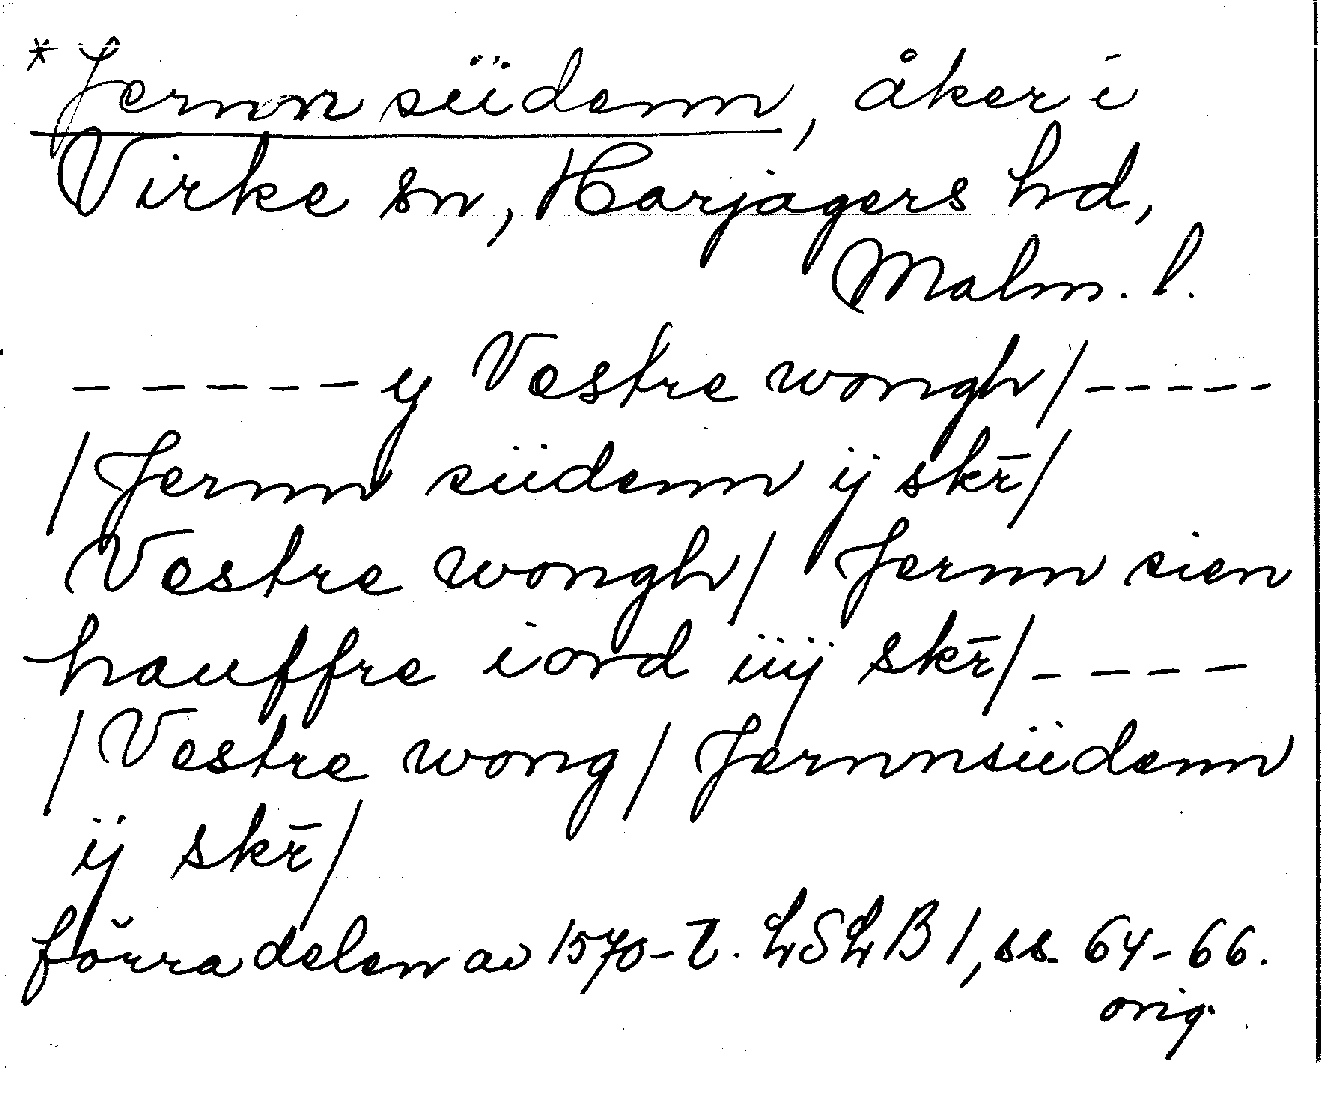 *Jernn siidenn, åker i
Virke sn, Harjagers hd,
Malm. l.
- - - - - y Vestre wongh/- - - - -
/Jernn siidenn ij skr̄/
Vestre wongh/ Jernn sien
hauffre iord iiij skr̄/- - - -
/Vestre wong/ Jernnsiidenn
ij skr̄/
förra delen av 1570-t. LSLB 1, ss. 64-66.
orig.